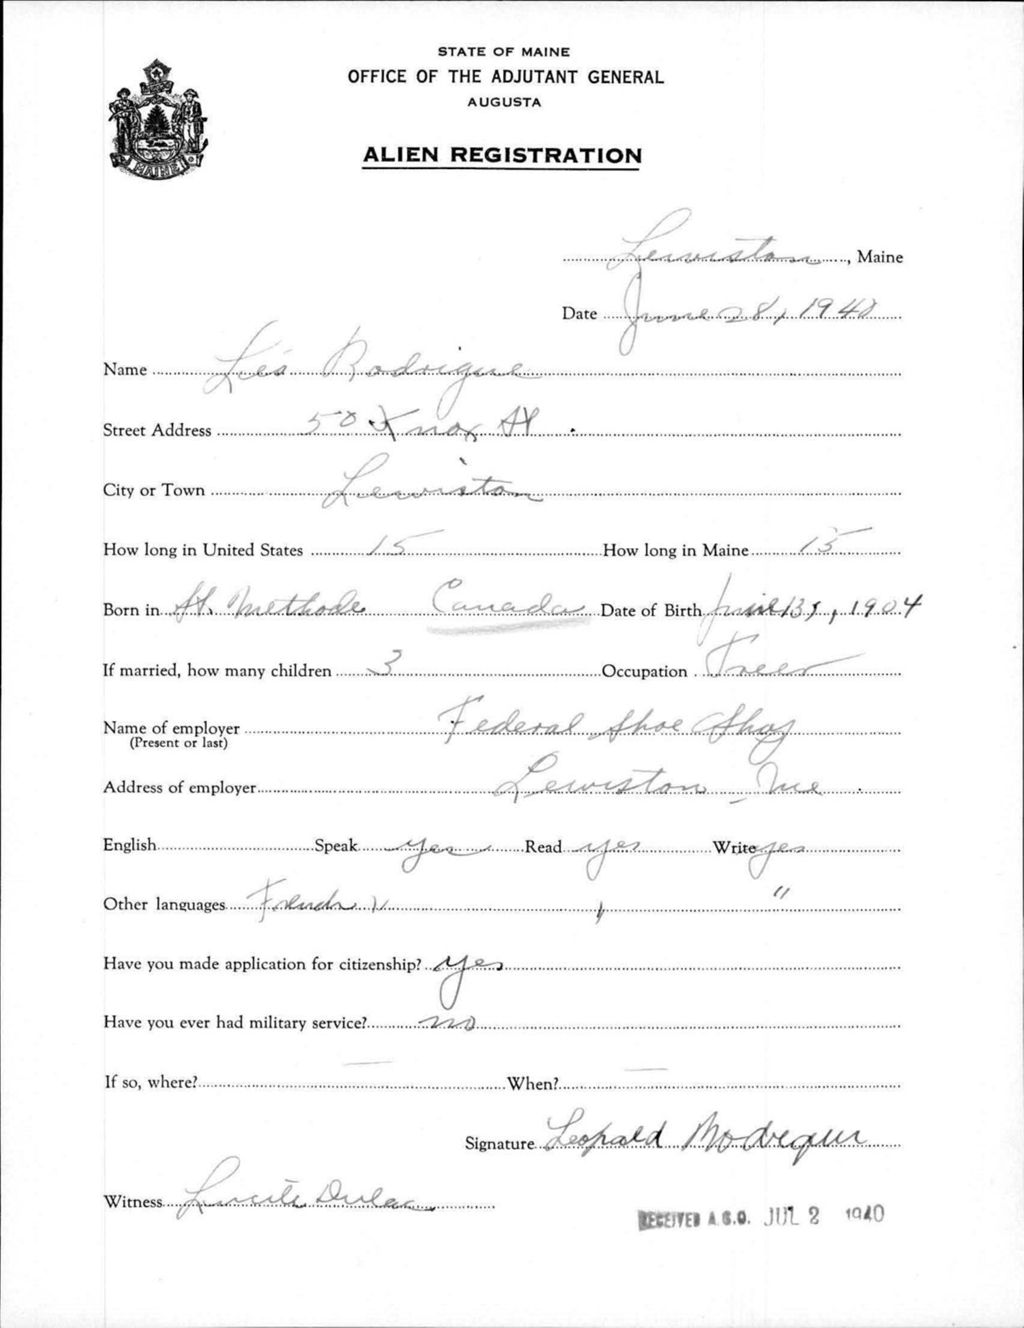 STATE OF MAINE
OFFICE OF THE ADJUTANT GENERAL
AUGUSTA
ALIEN REGISTRATION
MAINE
Lewiston, Maine
Date June 28, 1940
Name Léo Rodrigue
Street Address 50 Knox St.
City or Town Lewiston
How long in United States 15 How long in Maine 15
Born in St. Methode Canada Date of Birth 13, 1904
If married, how many children 3 Occupation Treer
Name of employer Federal Shoe Shop
(Present or last)
Address of employer Lewiston Me
English Speak yes Read yes Write yes
Other languages French " " "
Have you made application for citizenship? yes
Have you ever had military service? no
If so, where? — When? —
Signature Leopold Rodrigue
Witness Lucile Dulac
RECEIVED A.G.O. JUL 2 1940